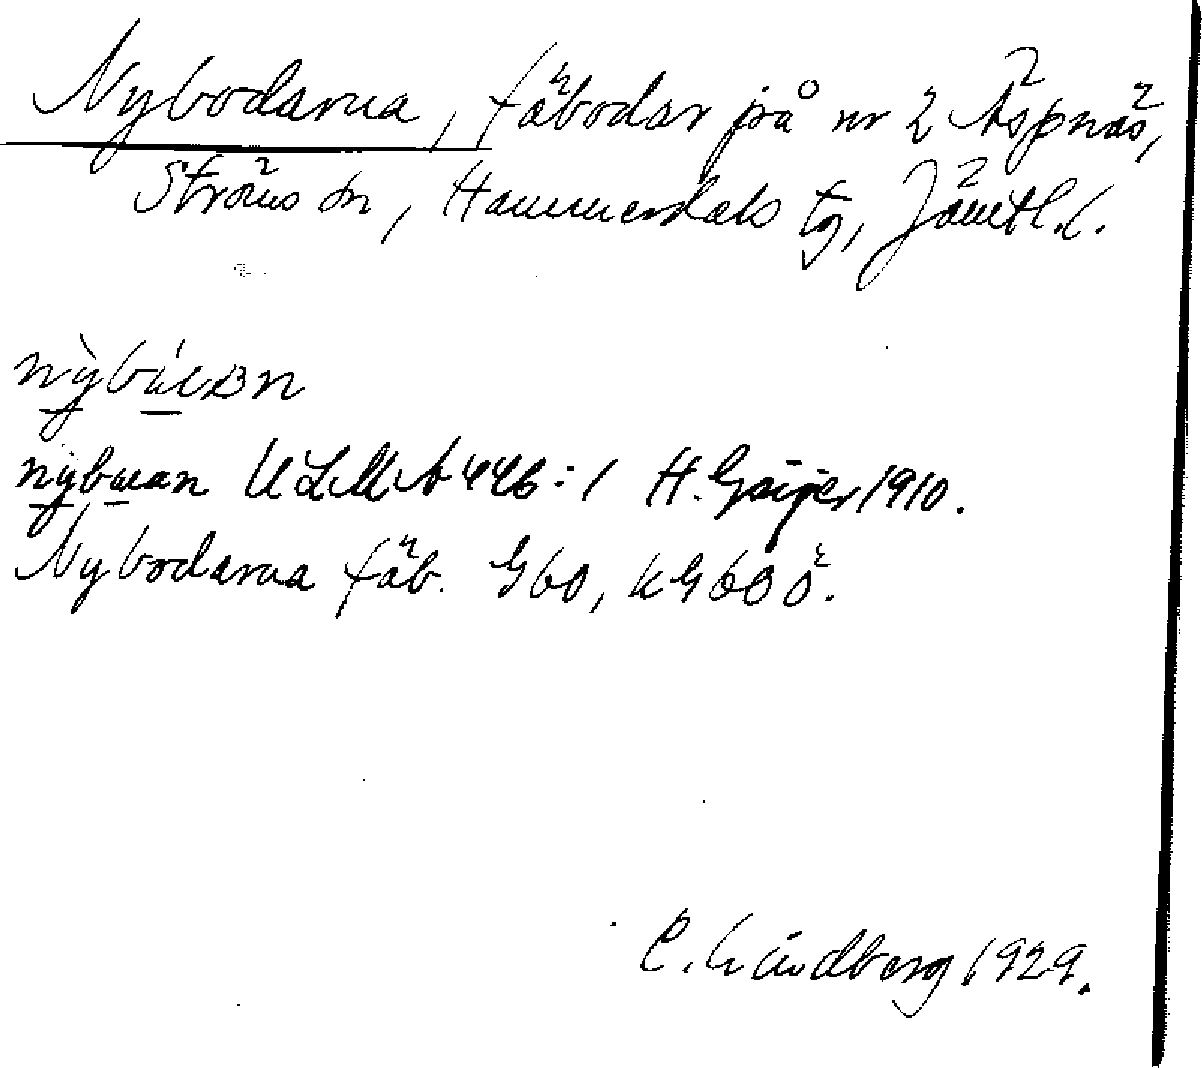 Nybodarna, fäbodar på nr 2 Äspnäs,
Ströms sn, Hammerdals tg, Jämtl. l.
nỳbúɛɒn
nybuan ULMA 446:1 H. Geijer 1910.
Nybodarna fäb. G60, kG60ö.
C. Lindberg 1929.